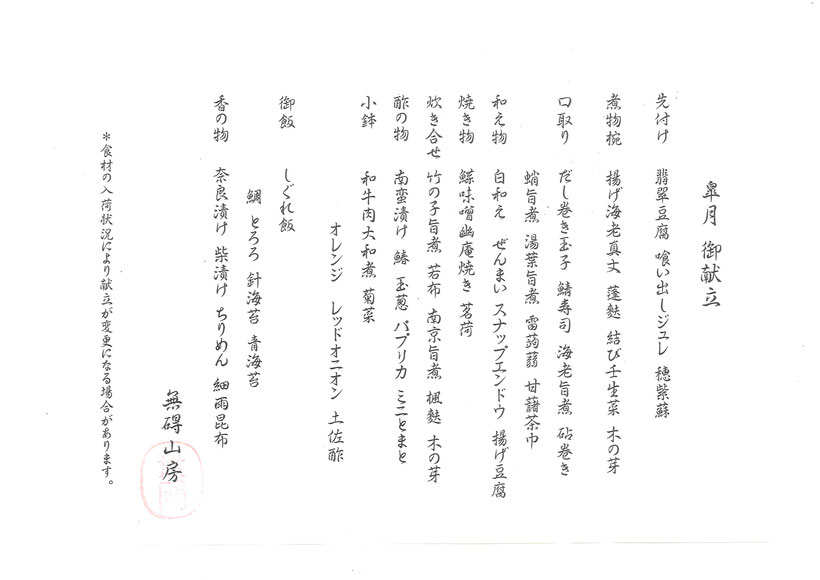 皐月 御献立
先付け 翡翠豆腐 喰い出しジュレ 穂紫蘇
煮物椀 揚げ海老真丈 蓬麩 結び壬生菜 木の芽
口取り だし巻き玉子 鯖寿司 海老旨煮 砧巻き
蛸旨煮 湯葉旨煮 雷蒟蒻 甘藷茶巾
和え物 白和え ぜんまい スナップエンドウ 揚げ豆腐
焼き物 鰈味噌幽庵焼き 茗荷
炊き合せ 竹の子旨煮 若布 南京旨煮 楓麩 木の芽
酢の物 南蛮漬け 鰆 玉葱 パプリカ ミニとまと
オレンジ レッドオニオン 土佐酢
小鉢 和牛肉大和煮 菊菜
御飯 しぐれ飯
鯛 とろろ 針海苔 青海苔
香の物 奈良漬け 柴漬け ちりめん 細雨昆布
無碍山房
*食材の入荷状況により献立が変更になる場合があります。